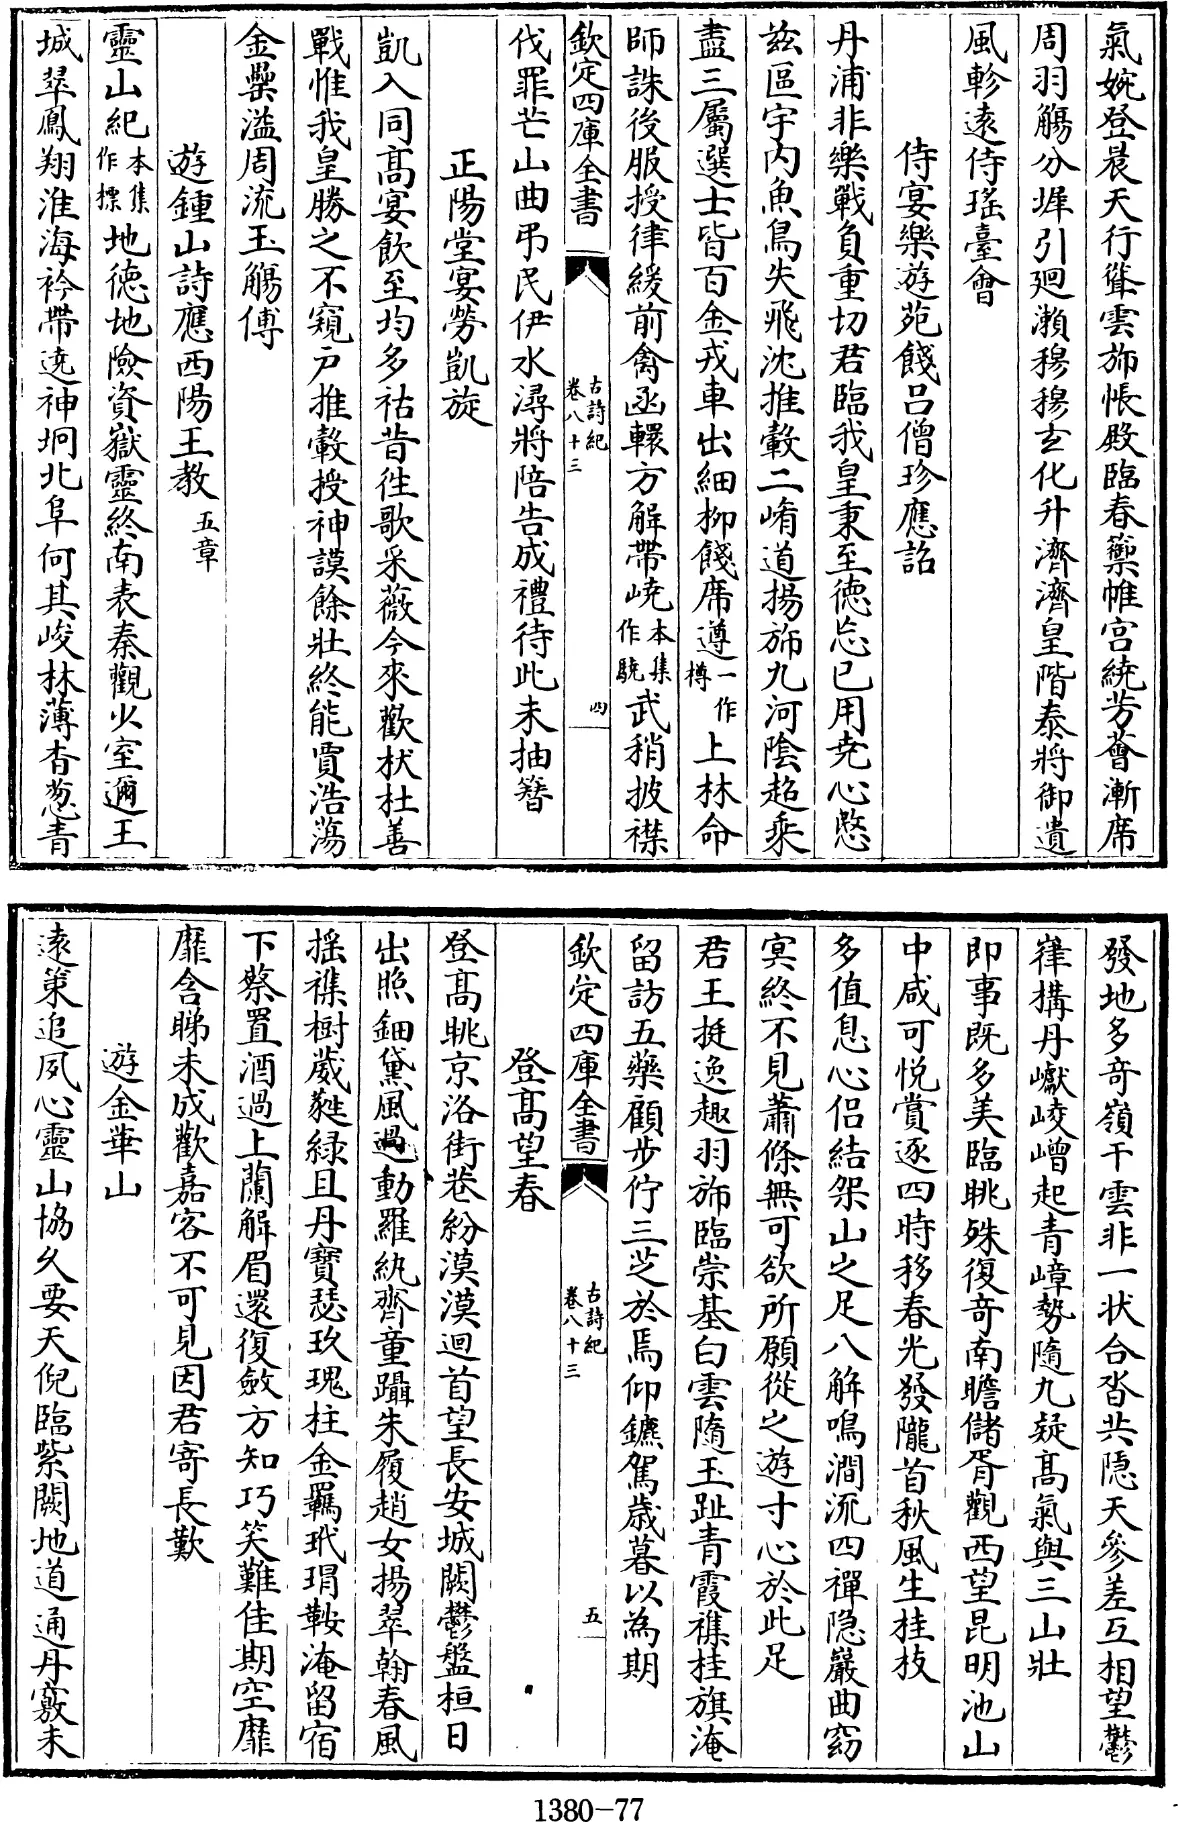 氣婉登晨天行聳雲斾帳殿臨春籞帷宫繞芳薈漸席
周羽觴分墀引廻瀨穆穆𤣥化升濟濟皇階泰將御遺
風軫遠侍瑤臺會
侍宴樂遊苑餞吕僧珍應詔
丹浦非樂戰負重切君臨我皇秉至德忘已用尭心愍
兹區宇内魚鳥失飛沈推轂二崤道揚斾九河陰超乘
盡三屬選士皆百金戎車出細柳餞席遵一作樽上林命
師誅後服授律緩前禽函轘方解帶嶢本集作驍武稍披襟
欽定四庫全書
古詩紀
卷八十三
四
伐罪芒山曲弔民伊水潯將陪告成禮待此未抽簪
正陽堂宴勞凱旋
凱入同髙宴飲至均多祜昔徃歌采薇今來歡杕杜善
戰惟我皇勝之不窺户推轂授神謨餘壯終能賈浩蕩
金罍溢周流玉觴傅
遊鍾山詩應西陽王教五章
靈山紀本集作標地德地險資嶽靈終南表秦觀少室邇王
城翠鳳翔淮海衿帶遶神坰北阜何其峻林薄杳葱青
發地多奇嶺干雲非一状合沓共隠天參差互相望鬱
嵂搆丹巘崚嶒起青嶂勢隨九疑髙氣與三山壯
即事既多美臨眺殊復奇南瞻儲胥觀西望昆明池山
中咸可悦賞逐四時移春光發隴首秋風生桂枝
多值息心侣結架山之足八解鳴澗流四禪隠巖曲窈
㝠終不見蕭條無可欲所願從之遊寸心於此足
君王挺逸趣羽斾臨崇基白雲隨玉趾青霞襍桂旗淹
留訪五藥顧步佇三芝於焉仰鑣駕歳暮以為期
欽定四庫全書
古詩紀
卷八十三
五
登髙望春
登髙眺京洛街巷紛漠漠迴首望長安城闕鬱盤桓日
出照鈿黛風過動羅紈齊童躡朱履趙女揚翠翰春風
揺襍樹葳蕤緑且丹寶瑟玫瑰柱金羈玳瑁鞍淹留宿
下蔡置酒過上蘭解眉還復斂方知巧笑難佳期空靡
靡含睇未成歡嘉客不可見因君寄長歎
遊金華山
遠策追夙心靈山協久要天倪臨紫闕地道通丹竅未
1380-77